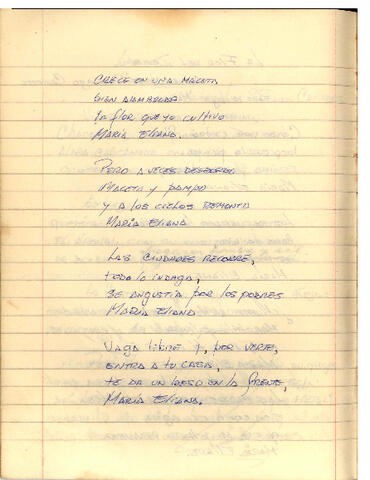 CRECE EN UNA MACETA
BIEN ALAMBRADA
la flor que yo cultivo
MARÍA ELIANA.
PERO A VECES DESBORDA
MACETA Y
Y A LOS CIELOS REMONTA
MARÍA ELIANA
LAS CIUDADES RECORRE,
todo lo indaga,
SE ANGUSTIA POR LOS POBRES
MARÍA ELIANA
VAGA LIBRE Y, POR VERTE,
ENTRA A TU CASA,
te da un beso en la frente,
MARÍA ELIANA.